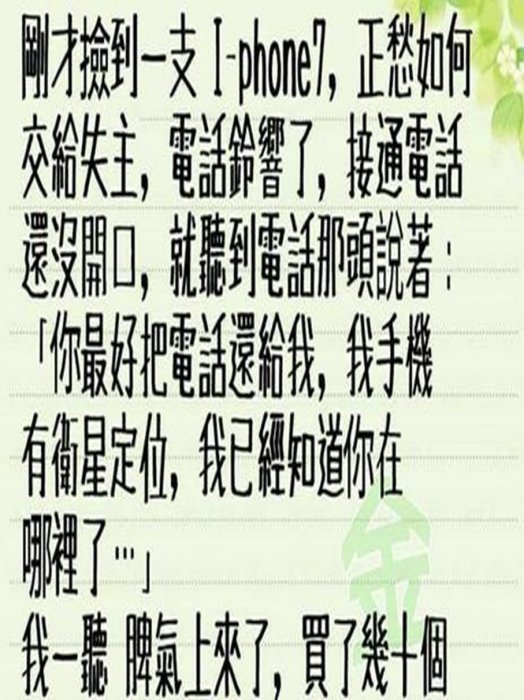 剛才撿到一支 I-phone7, 正愁如何
交給失主, 電話鈴響了, 接通電話
還沒開口, 就聽到電話那頭說著：
「你最好把電話還給我, 我手機
有衛星定位, 我已經知道你在
哪裡了…」
金
我一聽 脾氣上來了, 買了幾十個